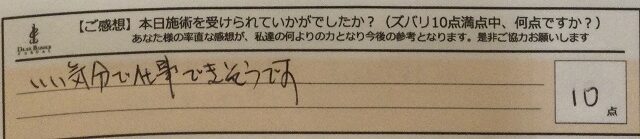 【ご感想】本日施術を受けられていかがでしたか?(ズバリ10点満点中、何点ですか?)
あなた様の率直な感想が、私達の何よりの力となり今後の参考となります。是非ご協力お願いします
いい気分で仕事できそうです
10点